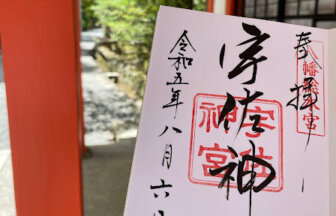 奉拝
八幡総本宮
宇佐神
宇佐
神宮
令和五年八月六